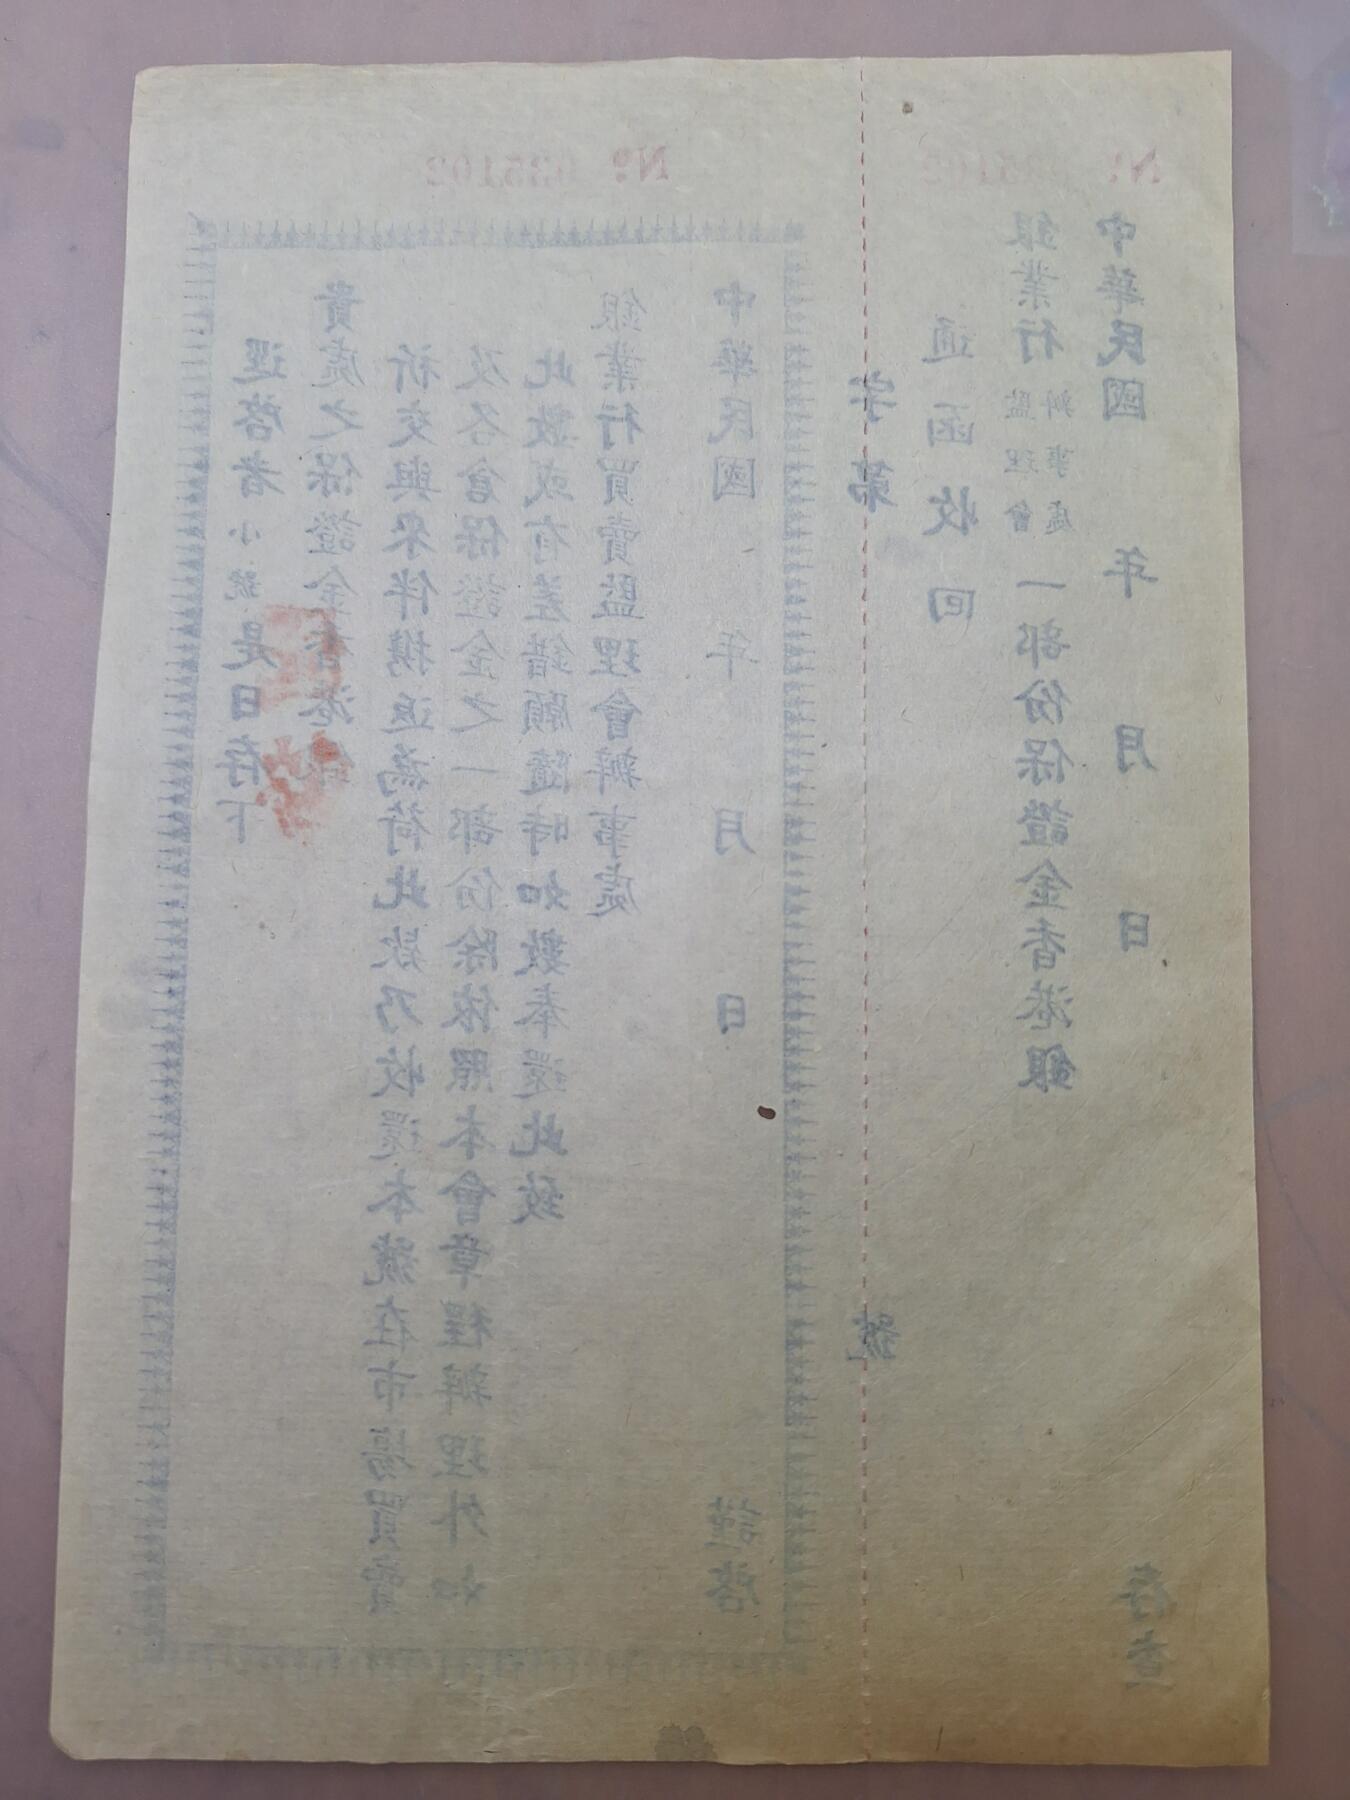 № 035102
逕啓者小號是日存下
貴處之保證金香港銀
祈交與來伴携返為荷此款乃收還本號在市塲買賣
及各倉保證金之一部份除依照本會章程辦理外如
此數或有差錯願隨時如數奉還此致
銀業行買賣監理會辦事處
中華民國 年 月 日 謹啓
字第 號
№ 035102
通函收回
銀業行監理會辦事處一部份保證金香港銀
中華民國 年 月 日 存查